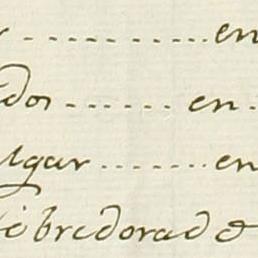 en
dos ........ en
lgar ........ en
bredorad